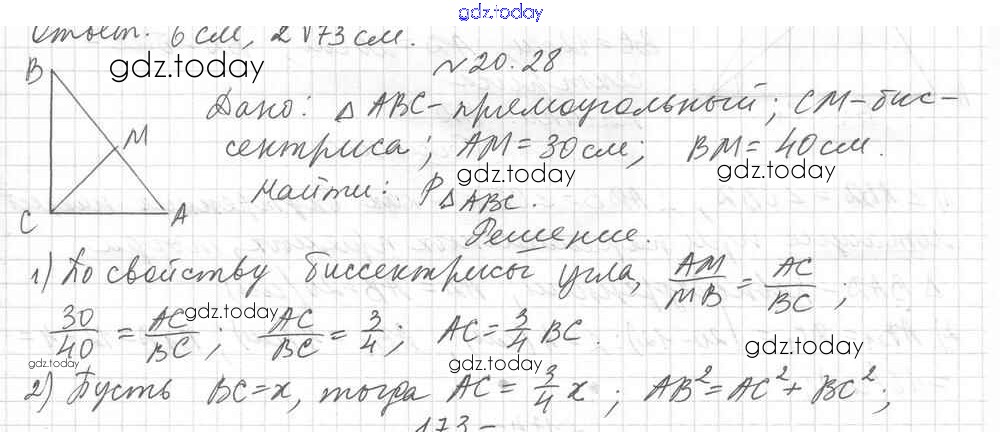 gdz.today
Ответ: 6 см, 2√73 см.
gdz.today
№20.28
Дано: △ABC - прямоугольный; CM - бис-
сектриса; AM = 30 см; BM = 40 см.
gdz.today
gdz.today
Найти: P△ABC.
B
M
C
A
Решение.
1) По свойству биссектрисы угла, AM/MB = AC/BC;
gdz.today
30/40 = AC/BC; AC/BC = 3/4; AC = 3/4 BC.
gdz.today
gdz.today
gdz.today
2) Пусть BC = x, тогда AC = 3/4 x; AB² = AC² + BC²;